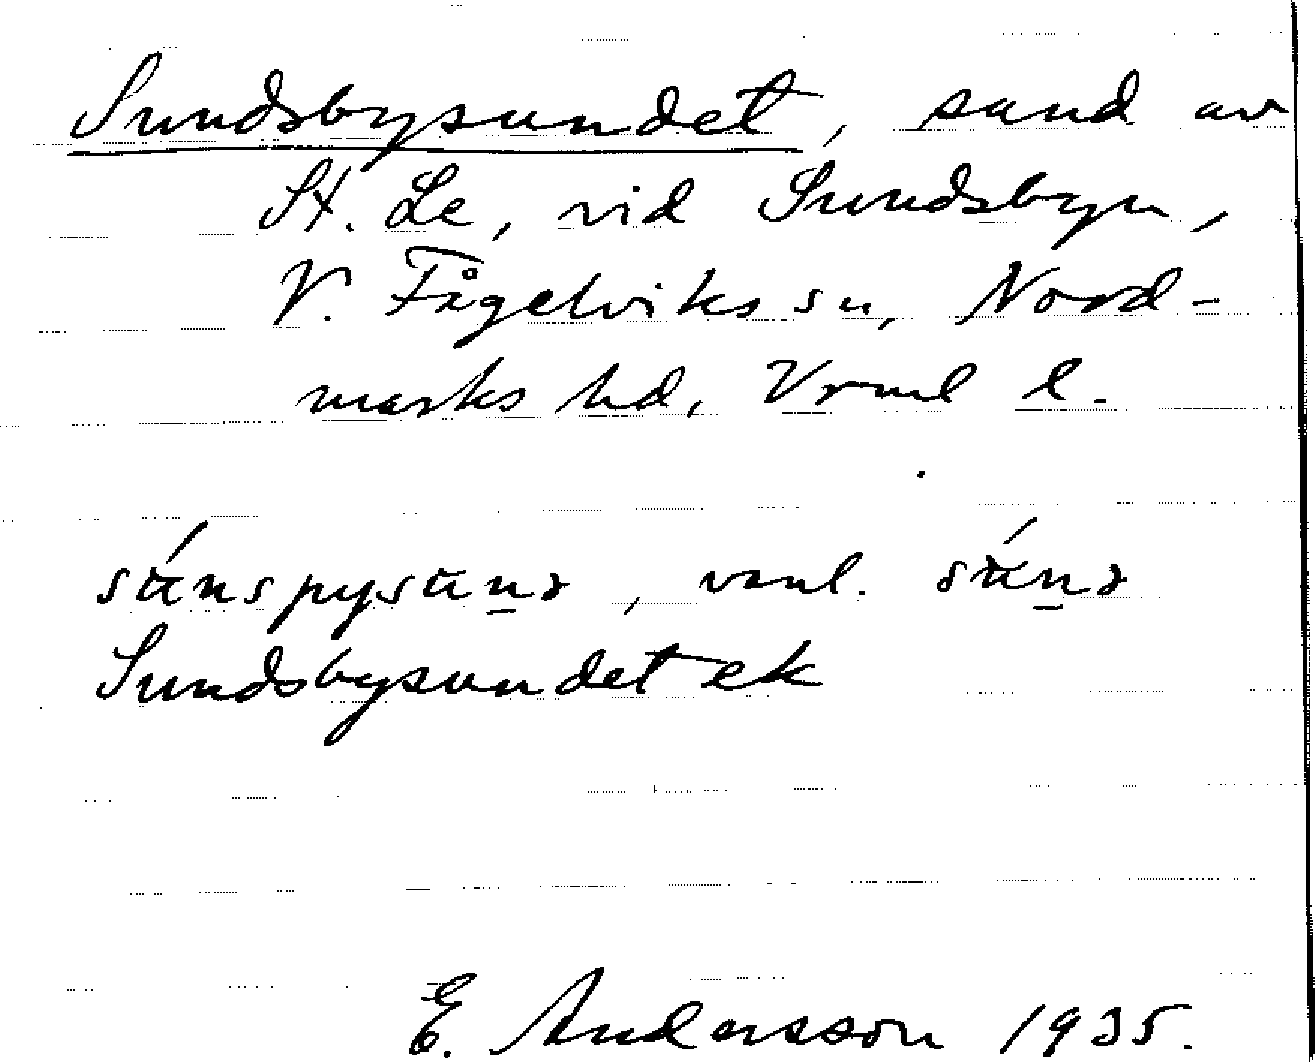 Sundsbysundet, sund av
St. Le, vid Sundsbyn,
V. Fågelviks sn, Nord-
marks hd, Vrml l.
vanl.
Sundsbysundet ek
E. Andersson 1935.